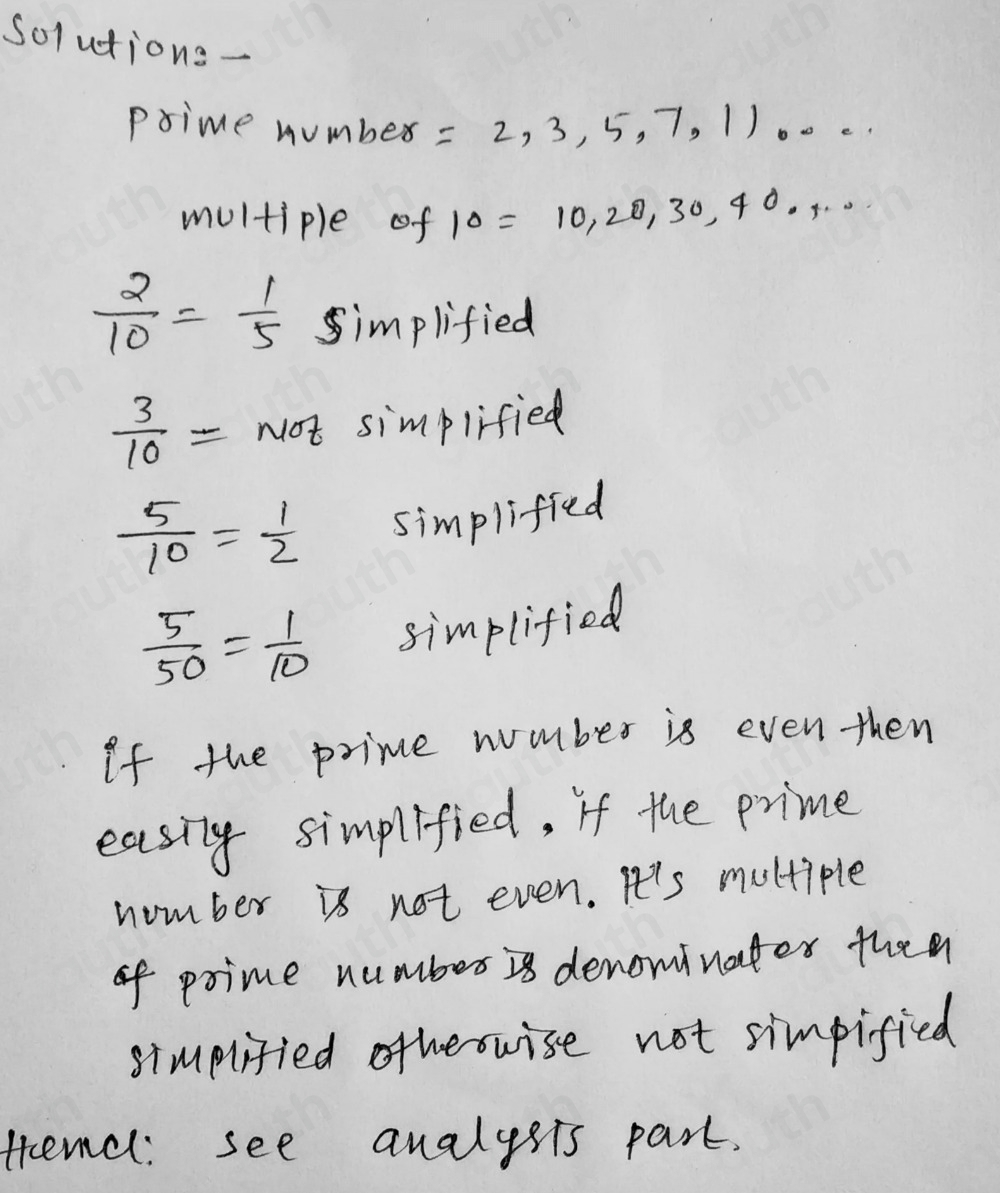 Solution:-
prime number = 2, 3, 5, 7, 11 .....
multiple of 10 = 10, 20, 30, 40.....
2/10 = 1/5 simplified
3/10 = Not simplified
5/10 = 1/2 simplified
5/50 = 1/10 simplified
if the prime number is even then
easily simplified, if the prime
number is not even. It's multiple
of prime number is denominator then
simplified otherwise not simpified
see analysis part.